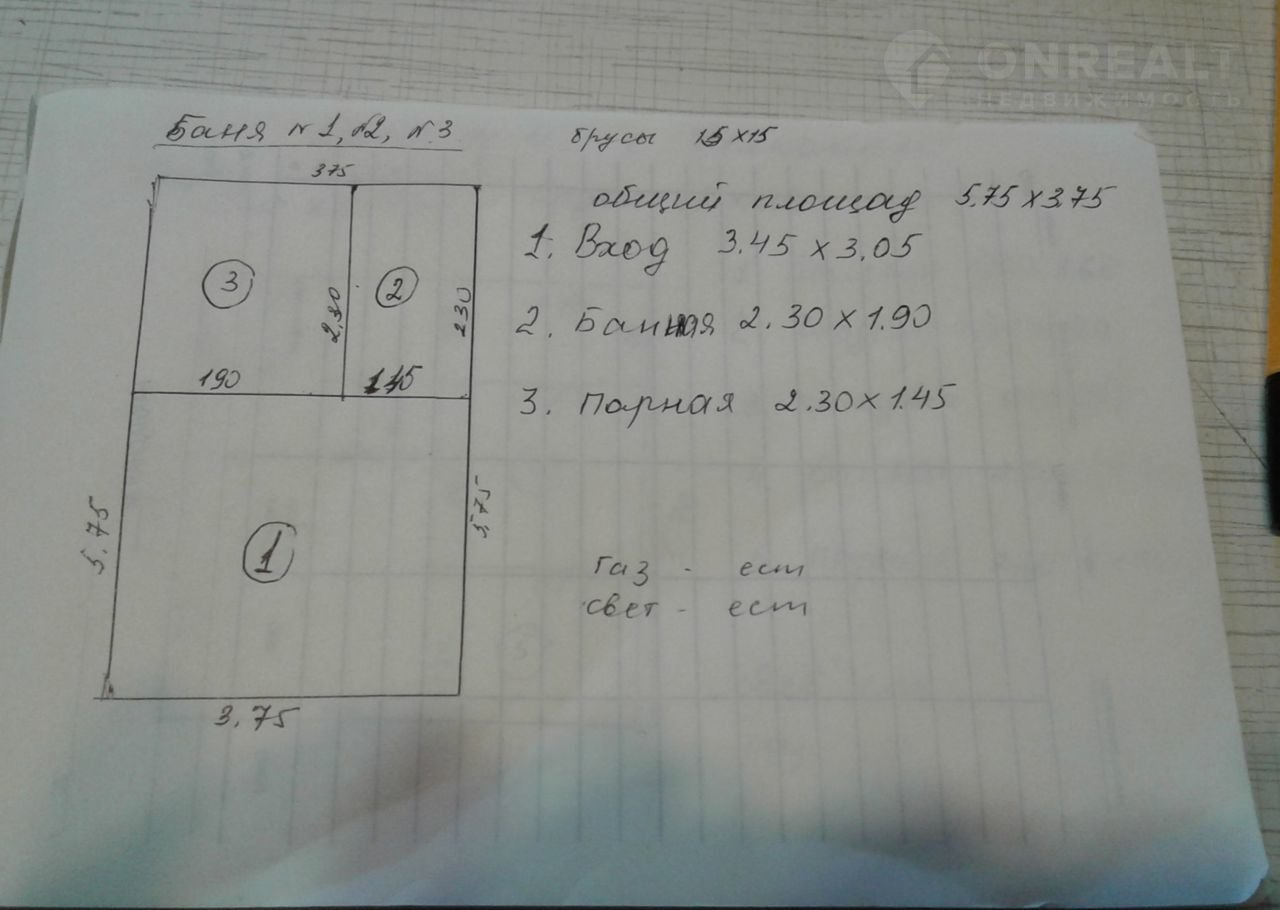 ONREALT
НЕДВИЖИМОСТЬ
Баня №1, №2, №3
брусы 15x15
375
общий площад 5.75 x 3.75
1. Вход 3.45 x 3.05
3
2
2.30
230
2. Банная 2.30 x 1.90
190
145
3. Парная 2.30 x 1.45
5.75
5.75
1
газ - ест
свет - ест
3.75